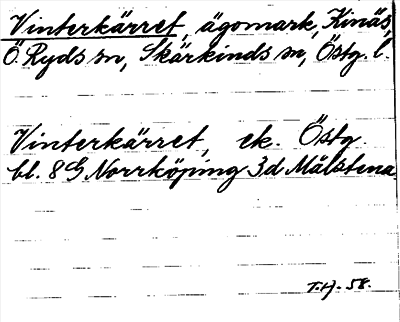 Vinterkärret, ägomark, Kinäs,
Ö. Ryds sn, Skärkinds sn, Östg. l.
Vinterkärret, ek. Östg.
bl. 8G Norrköping 3d Målstena
T.H. 58.